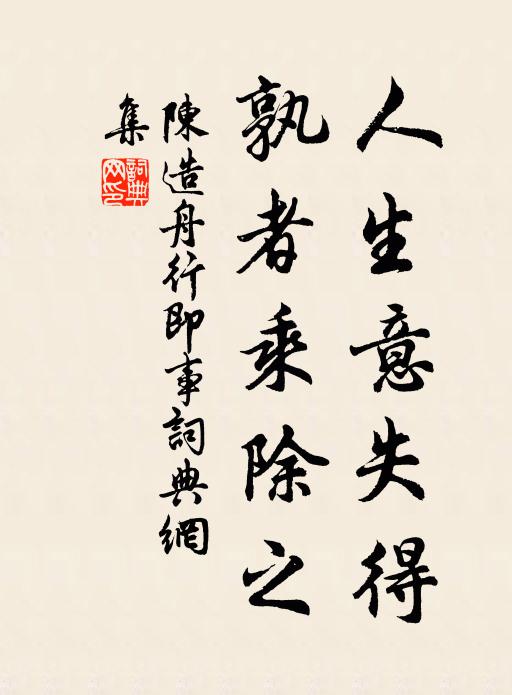 人生意失得
孰者乘除之
陳造舟行即事詞典網
集
詞典網印